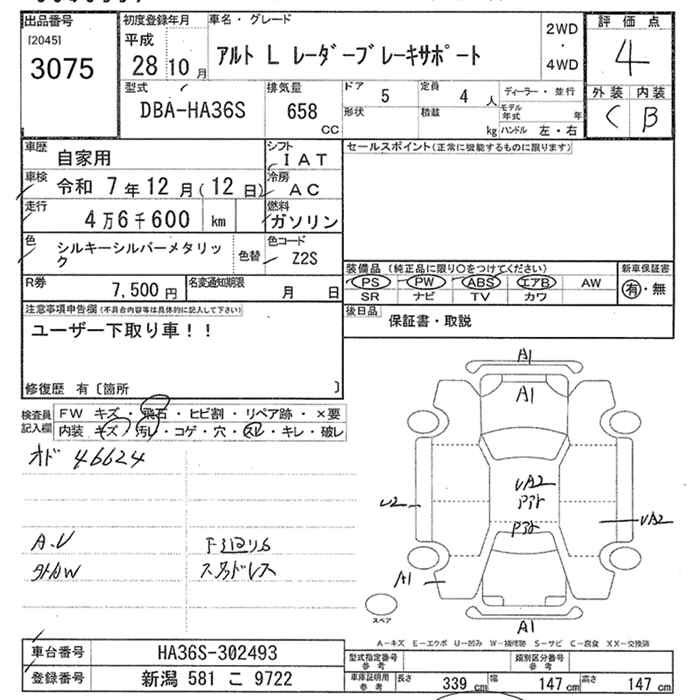 出品番号
[2045]
3075
初度登録年月
平成
28 10 月
車名・グレード
アルト L レーダーブレーキサポート
2WD
・
4WD
評価点
4
外装 内装
C B
型式
DBA-HA36S
排気量
658
CC
ドア
5
定員
4 人
ディーラー・並行
形状
積載
kg
モデル年式
年
ハンドル 左・右
車歴
自家用
シフト
IAT
車検
令和 7年12月(12日)
冷房
AC
走行
4万6千600 km
燃料
ガソリン
色
シルキーシルバーメタリック
色替
色コード
Z2S
R券
7,500 円
名変通知期限
月 日
セールスポイント(正常に機能するものに限ります)
装備品 (純正品に限り○をつけてください)
新車保証書
PS PW ABS エアB AW
有・無
SR ナビ TV カワ
後日品
保証書・取説
注意事項申告欄(不具合内容等は具体的に記入して下さい)
ユーザー下取り車!!
修復歴 有〔箇所 〕
検査員記入欄
FW キズ・飛石・ヒビ割・リペア跡・×要
内装 キズ・汚レ・コゲ・穴・スレ・キレ・破レ
オド 46624
A.U
タイヤスタッドレス
A1
A1
UA2
U2
UA2
A1
A1
スペア
A-キズ E-エクボ U-凹み W-補修跡 S-サビ C-腐食 XX-交換済
車台番号
HA36S-302493
登録番号
新潟 581 こ 9722
型式指定番号
参考
類別区分番号
参考
車庫証明用
参考
長さ
339 cm
幅
147 cm
高さ
147 cm